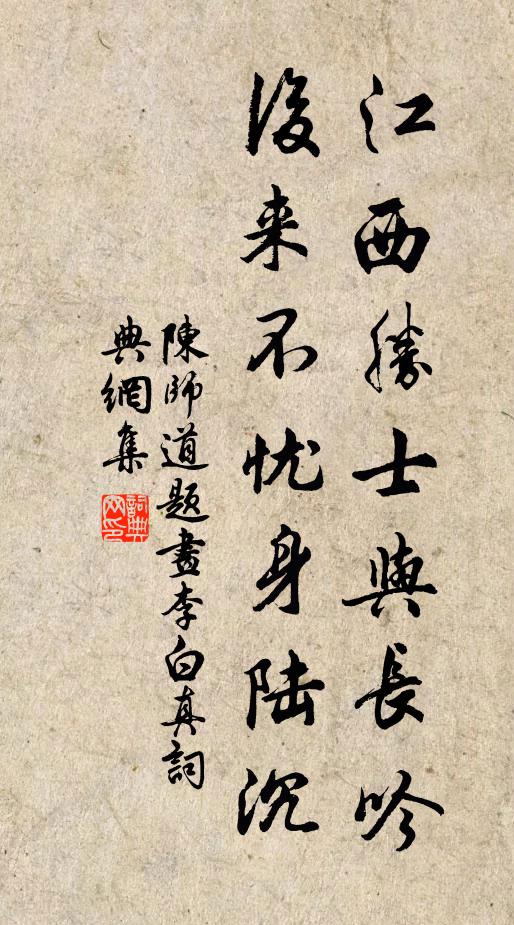 江西勝士與長吟
後来不忧身陆沉
陳師道題畫李白真詞
典網集
詞典网印